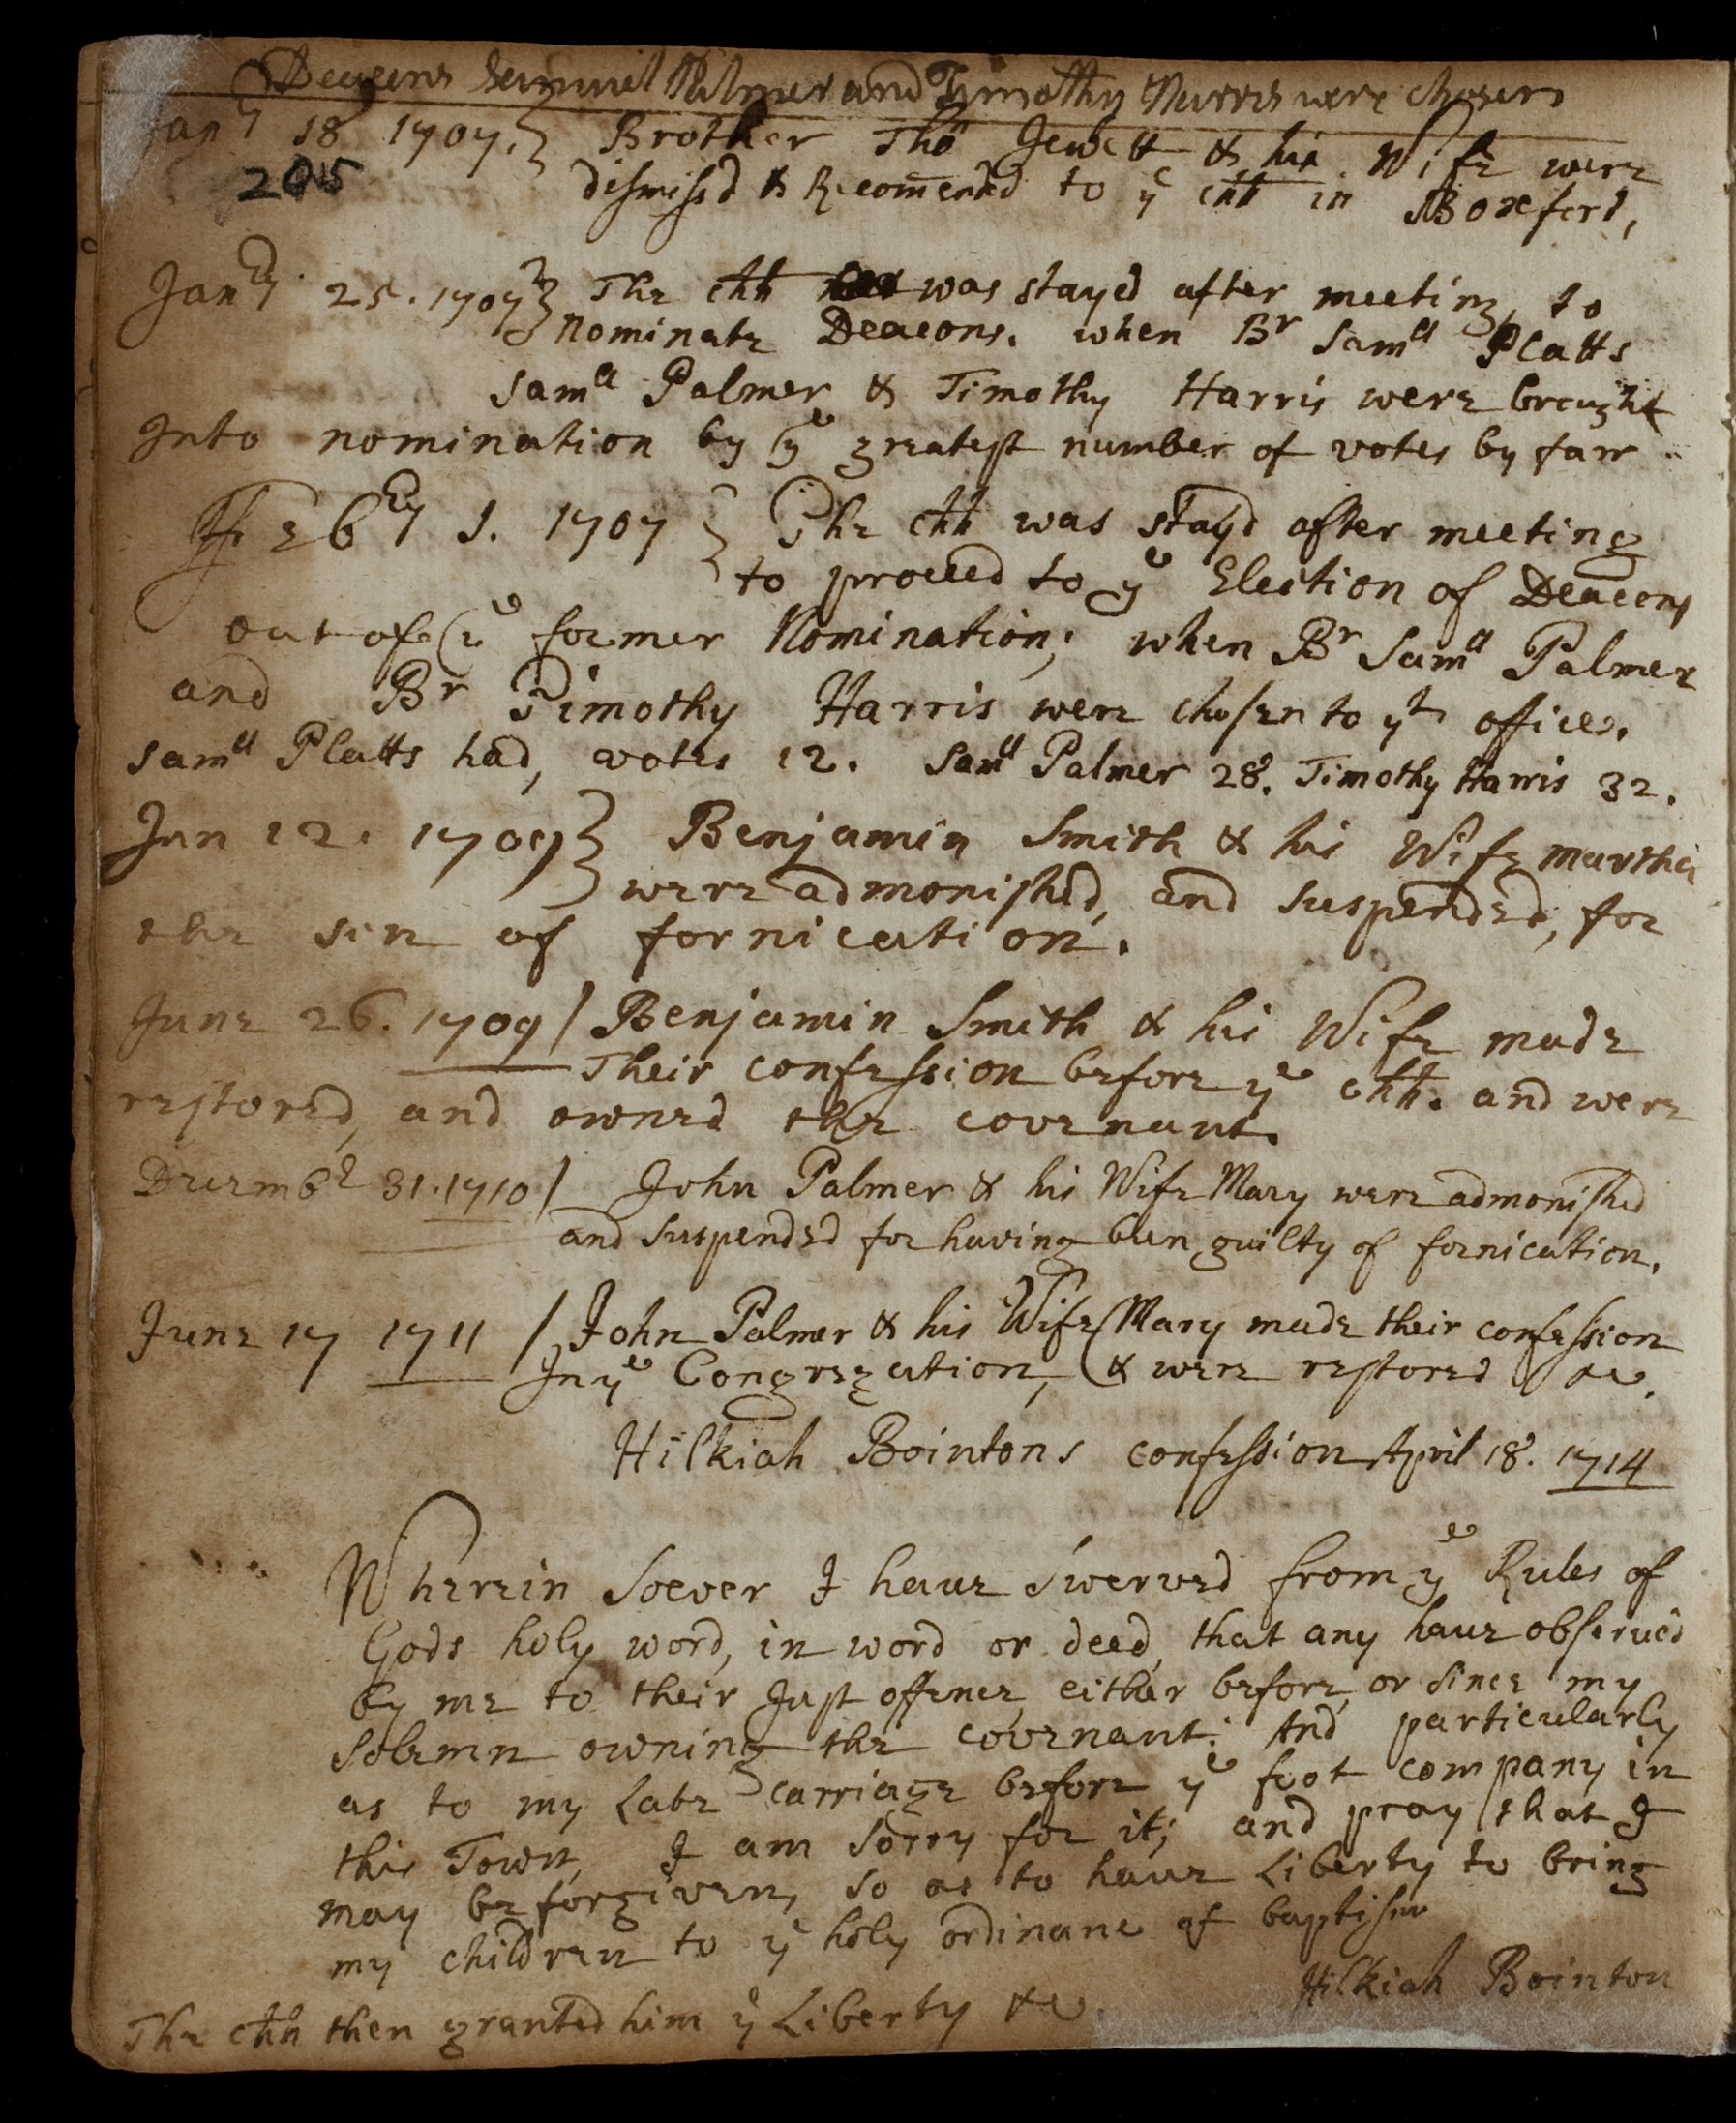 Deacons Samuel Palmer and Timothy Harris were chosen
Janry 18 1707. } Brother Tho Jewett & his Wife were
205
dismiss'd & Recomended to ye chh in Boxford,
Janry 25. 1707 } The chh was stayed after meeting, to
Nominate Deacons. when Br Samll Platts
Samll Palmer & Timothy Harris were brought
Into nomination by ye greatest number of votes by farr
Febry 1. 1707 } The chh was stayd after meeting
to proceed to ye Election of Deacons
out of ye former Nomination; when Br Samll Palmer
and Br Timothy Harris were chosen to yt office.
Samll Platts had, votes 12. Samll Palmer 28. Timothy Harris 32.
Jun 12. 1709 } Benjamin Smith & his Wife martha
were admonished, and suspended, for
the sin of fornication.
June 26. 1709 / Benjamin Smith & his Wife made
Their confession before ye chh. and were
restored, and owned the covenant.
Decembr 31. 1710 / John Palmer & his Wife Mary were admonished
and suspended for having been guilty of fornication.
June 17 1711 / John Palmer & his Wife Mary made their confession
In ye Congregation, & were restored &c.
Hilkiah Bointons confession April 18. 1714
Wherein soever I have swerved from ye Rules of
Gods holy word, in word or deed, that any have observed
by me to their Just offence, either before, or since my
solemn owning the covenant: And particularly
as to my Late carriage before ye foot company in
this Town, I am sorry for it; and pray that I
may be forgiven, so as to have Liberty to bring
my children to ye holy ordinance of baptism
Hilkiah Bointon
The chh then granted him ye Liberty &c.